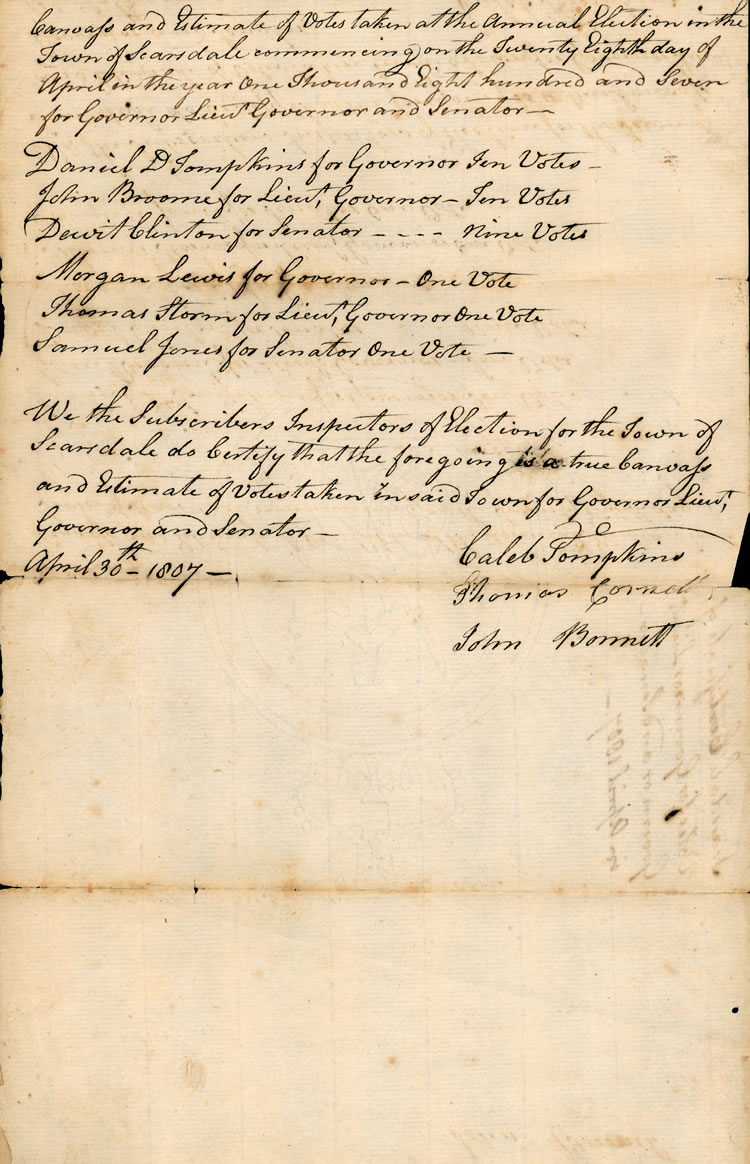 Canvass and Estimate of Votes taken at the Annual Election in the
Town of Scarsdale commencing on the Twenty Eighth day of
April in the year One Thousand Eight hundred and Seven
for Governor Lieut Governor and Senator —
Daniel D Tompkins for Governor Ten Votes —
John Broome for Lieut, Governor — Ten Votes
Dewit Clinton for Senator - - - - Nine Votes
Morgan Lewis for Governor — One Vote
Thomas Storm for Lieut, Governor One Vote
Samuel Jones for Senator One Vote —
We the Subscribers Inspectors of Election for the Town of
Scarsdale do Certify that the foregoing is a true Canvass
and Estimate of Votes taken In said Town for Governor Lieut,
Governor and Senator —
April 30th — 1807 —
Caleb Tompkins
Thomas Cornell
John Bonnett